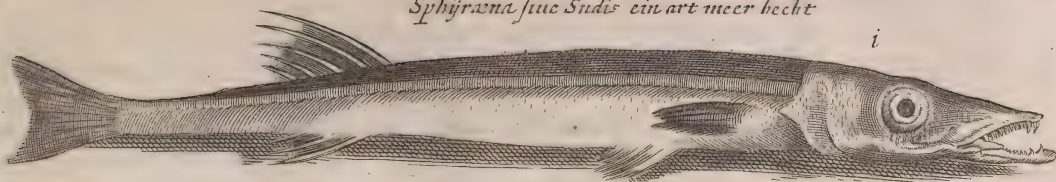 Sphÿræna siue Sudis ein art meer hecht
i